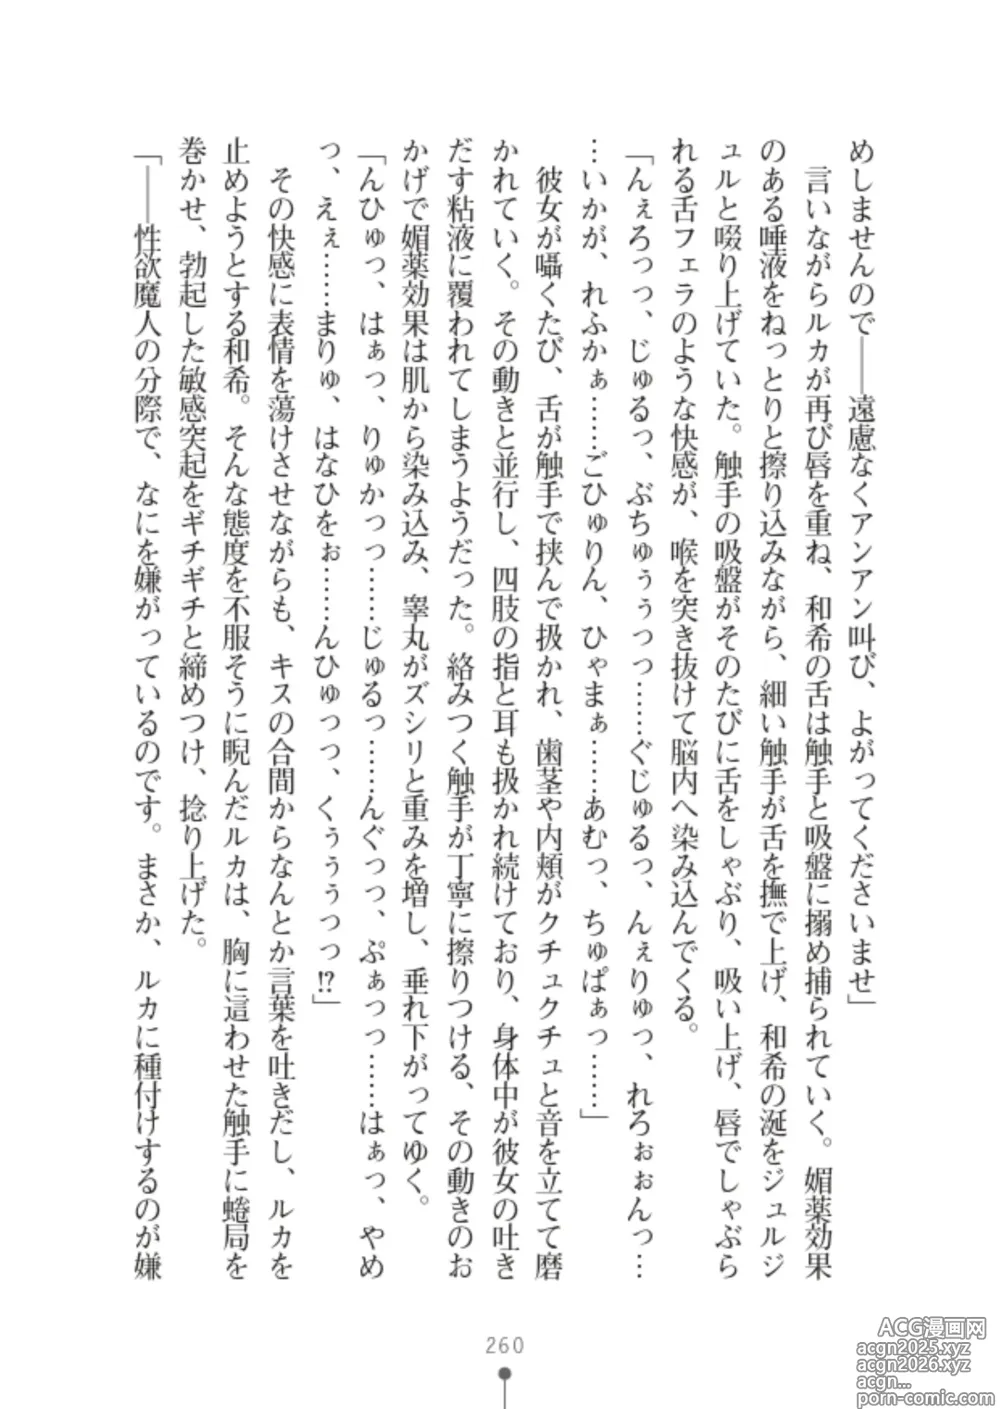 めしませんので――遠慮なくアンアン叫び、よがってくださいませ」
　言いながらルカが再び唇を重ね、和希の舌は触手と吸盤に搦め捕られていく。媚薬効果
のある唾液をねっとりと擦り込みながら、細い触手が舌を撫で上げ、和希の涎をジュルジ
ュルと啜り上げていた。触手の吸盤がそのたびに舌をしゃぶり、吸い上げ、唇でしゃぶら
れる舌フェラのような快感が、喉を突き抜けて脳内へ染み込んでくる。
「んぇろっっ、じゅるっ、ぶちゅぅぅっっ……ぐじゅるっ、んぇりゅっ、れろぉぉんっ…
…いかが、れふかぁ……ごひゅりん、ひゃまぁ……あむっ、ちゅぱぁっ……」
　彼女が囁くたび、舌が触手で挟んで扱かれ、歯茎や内頬がクチュクチュと音を立てて磨
かれていく。その動きと並行し、四肢の指と耳も扱かれ続けており、身体中が彼女の吐き
だす粘液に覆われてしまうようだった。絡みつく触手が丁寧に擦りつける、その動きのお
かげで媚薬効果は肌から染み込み、睾丸がズシリと重みを増し、垂れ下がってゆく。
「んひゅっ、はぁっ、りゅかっっ……じゅるっ……んぐっっ、ぷぁっっ……はぁっ、やめ
っ、えぇ……まりゅ、はなひをぉ……んひゅっっ、くぅぅぅっっ!?」
　その快感に表情を蕩けさせながらも、キスの合間からなんとか言葉を吐きだし、ルカを
止めようとする和希。そんな態度を不服そうに睨んだルカは、胸に這わせた触手に蜷局を
巻かせ、勃起した敏感突起をギチギチと締めつけ、捻り上げた。
「――性欲魔人の分際で、なにを嫌がっているのです。まさか、ルカに種付けするのが嫌
260
ACG漫画网
acgn2025.xyz
acgn2026.xyz
acgn...
porn-comic.com